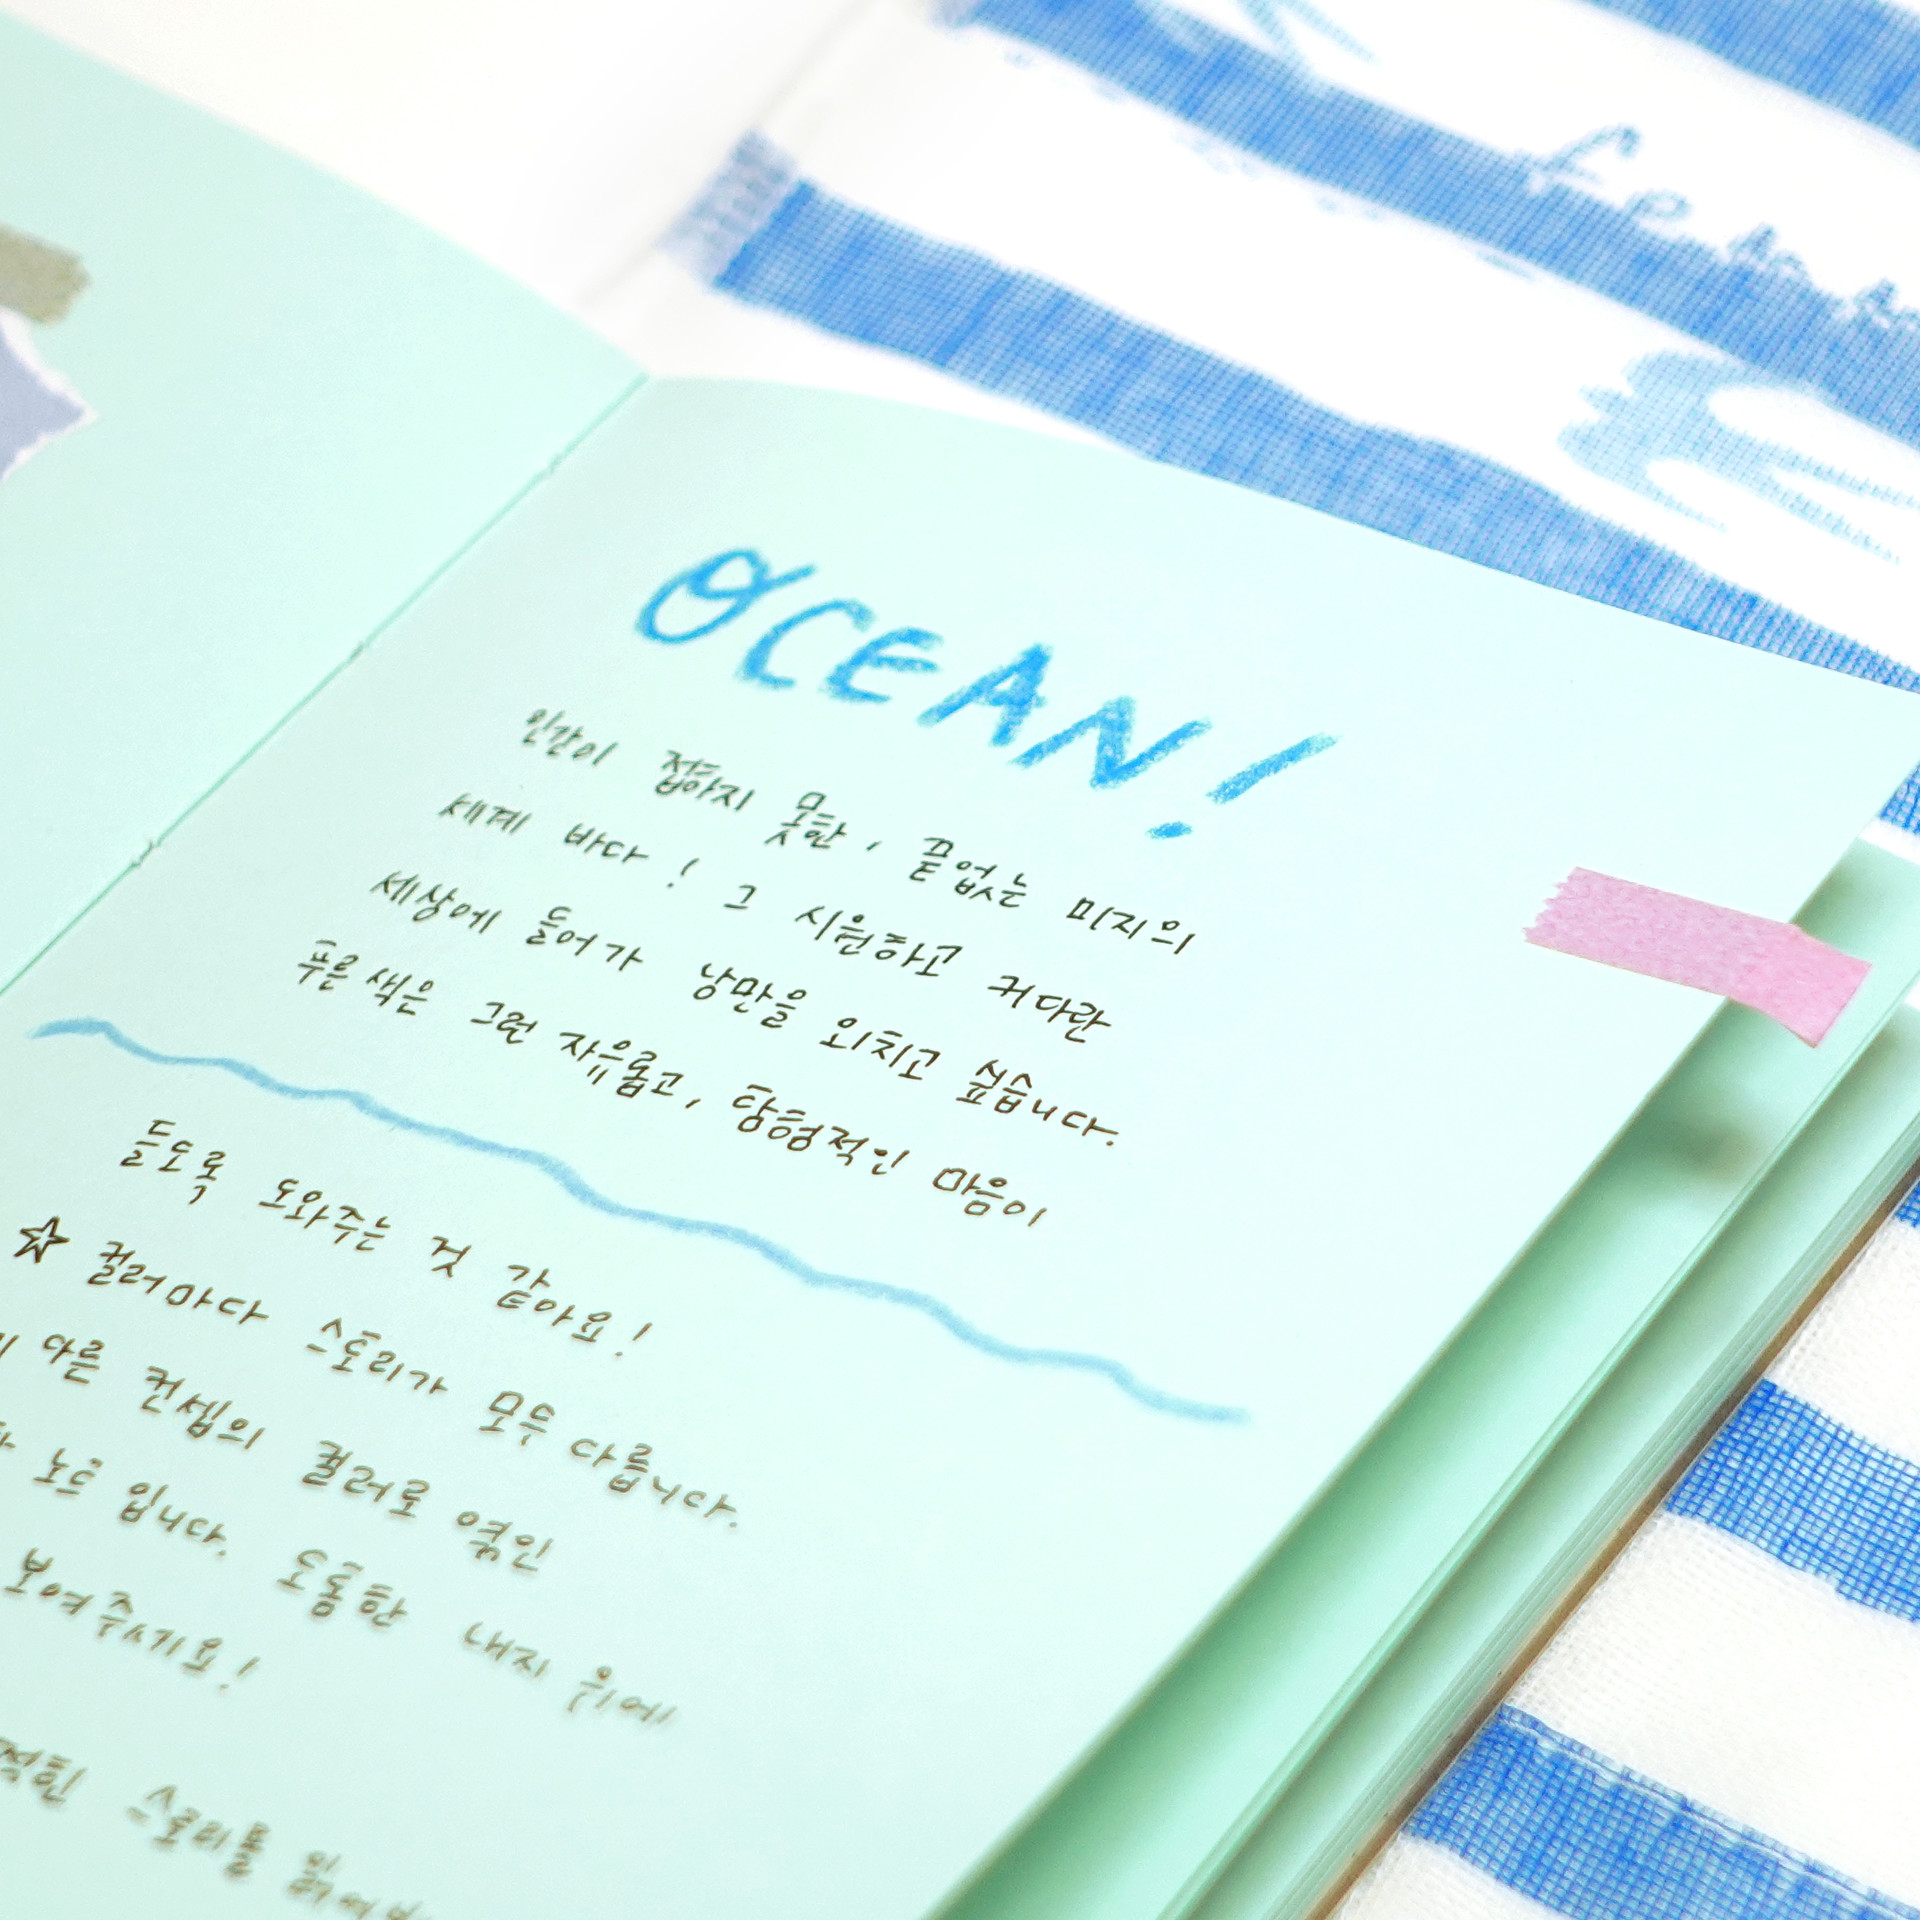 OCEAN!
인간이 접하지 못한, 끝없는 미지의
세계 바다! 그 시원하고 커다란
세상에 들어가 낭만을 외치고 싶습니다.
푸른 색은 그런 자유롭고, 탐험적인 마음이
들도록 도와주는 것 같아요!
☆ 컬러마다 스토리가 모두 다릅니다.
다른 컨셉의 컬러로 엮인
노트 입니다. 도톰한 내지 위에
보여주시기요!
스토리를